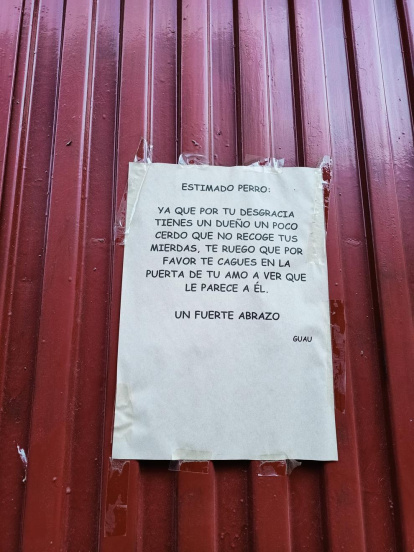 ESTIMADO PERRO:
YA QUE POR TU DESGRACIA
TIENES UN DUEÑO UN POCO
CERDO QUE NO RECOGE TUS
MIERDAS, TE RUEGO QUE POR
FAVOR TE CAGUES EN LA
PUERTA DE TU AMO A VER QUE
LE PARECE A ÉL.
UN FUERTE ABRAZO
GUAU